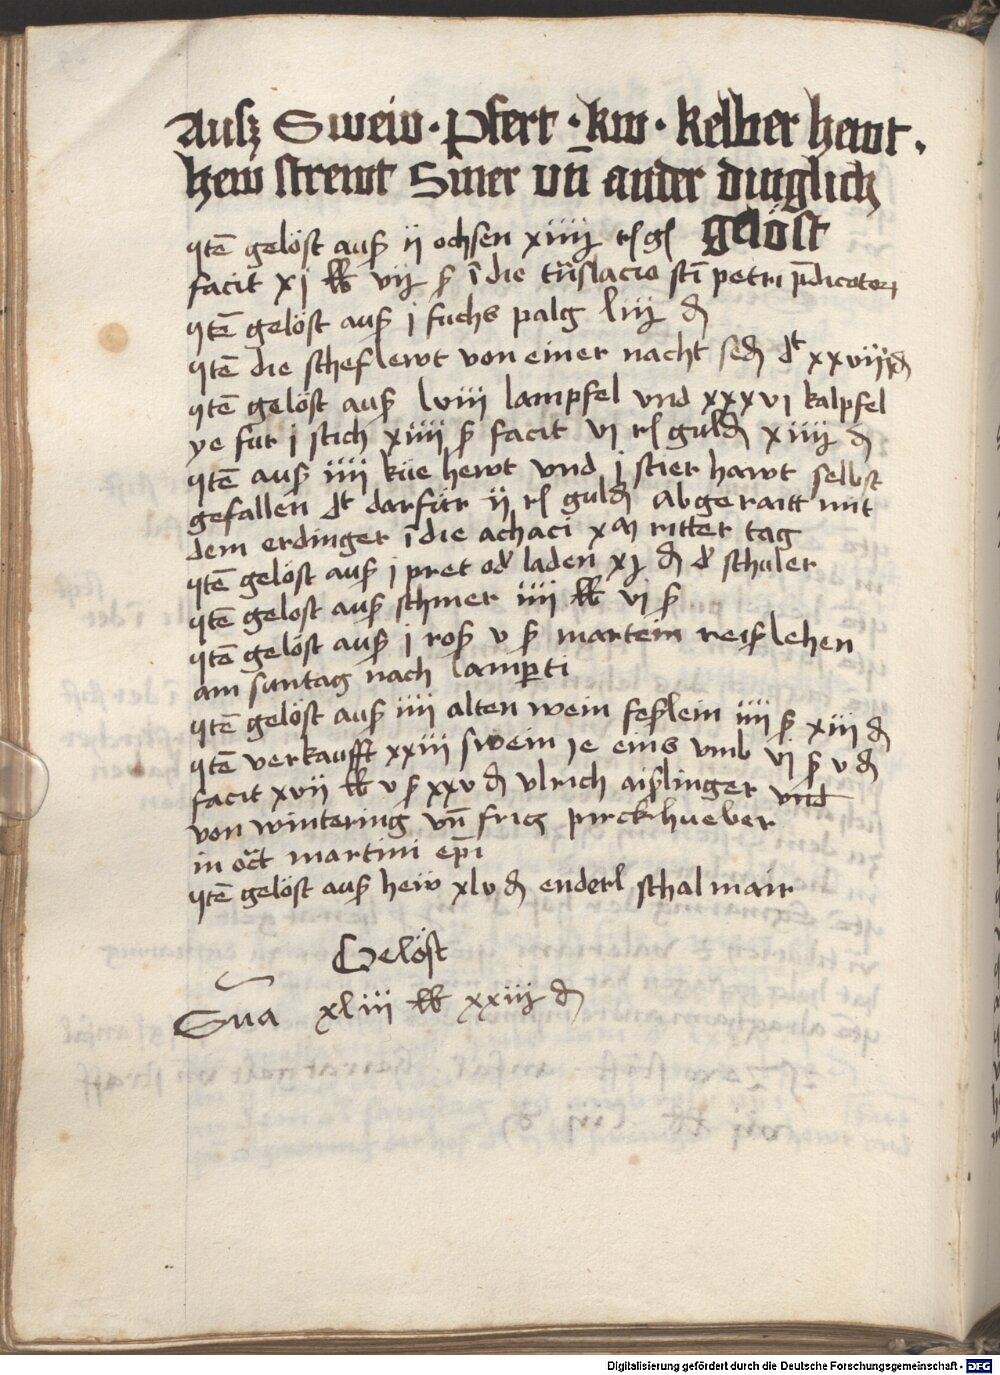 Ausz Swein · Pfert · kw · kelber hewt ·
hew strewt Smer vn̄ ander dinglich
gelöst
Itē gelöst auß ij ochsen xiiij
facit xj lb vij ß ī die trāslacio sti petri p̄dicator
Itē gelöst auß j fuchs palg liij d
Itē die scheflewt von einer nacht dt xxviij d
Itē gelöst auß lviii lampfel vnd xxxvi kalpfel
ye fur j stich xiiii ß facit vi rl guld xiiij d
Itē auß iiii küe hewt vnd j stier hawt selbst
gefallen dt darfür ij rl guld abgeraitt mit
dem erdinger ī die achaci xm ritter tag
Itē gelöst auß j pret od laden xj d d schuler
Itē gelost auß schmer iiii lb vi ß
Itē gelöst auß j roß v ß martein reißlehen
am suntag nach lamperti
Itē gelöst auß iiii alten wein feßlein iiii ß xiii d
Itē verkaufft xxiii swein je eins vmb vj ß v d
facit xvii lb v ß xxv d vlrich aißlinger vnd
von wintering vn̄ fricz pirckhueber
in oct martini ep̄i
Itē gelöst auß hew xlv d enderl schalmair
Gelöst
Sua xliii lb xxiij d
Digitalisierung gefördert durch die Deutsche Forschungsgemeinschaft - DFG